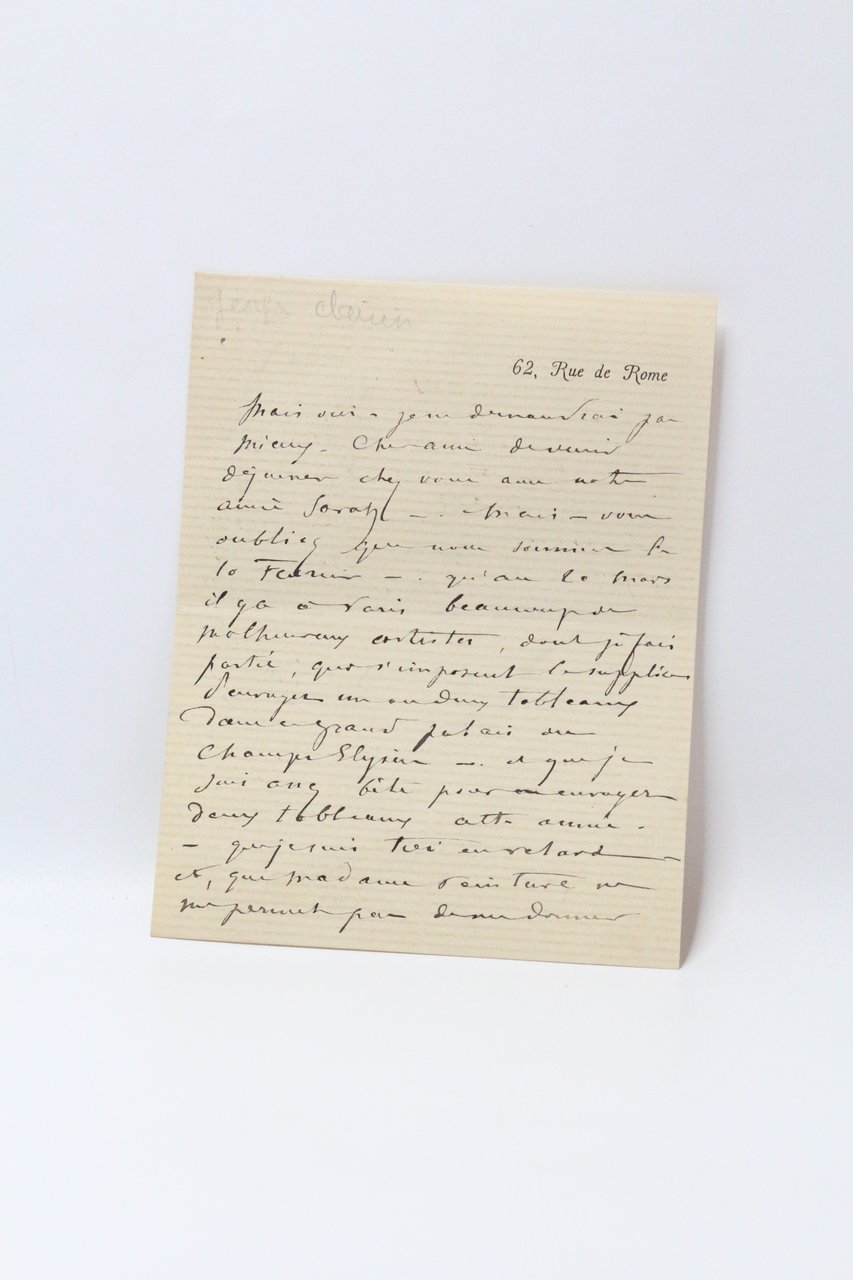 Georges Clairin
62, Rue de Rome
Mais oui – je ne demanderai pas
mieux – Cher ami de venir
déjeuner chez vous avec notre
amie Sarah – . – Mais – vous
oubliez que nous sommes le
10 Fevrier – . qu'au 20 Mars
il y a à Paris beaucoup de
malheureux artistes, dont je fais
partie, qui s'imposent le supplice
d'envoyer un ou deux tableaux
dans ce grand palais des
Champs Elysées – . et que je
suis assez bête pour envoyer
deux tableaux cette année –
– que je suis très en retard
et, que Madame Peinture ne
me permet pas de me donner